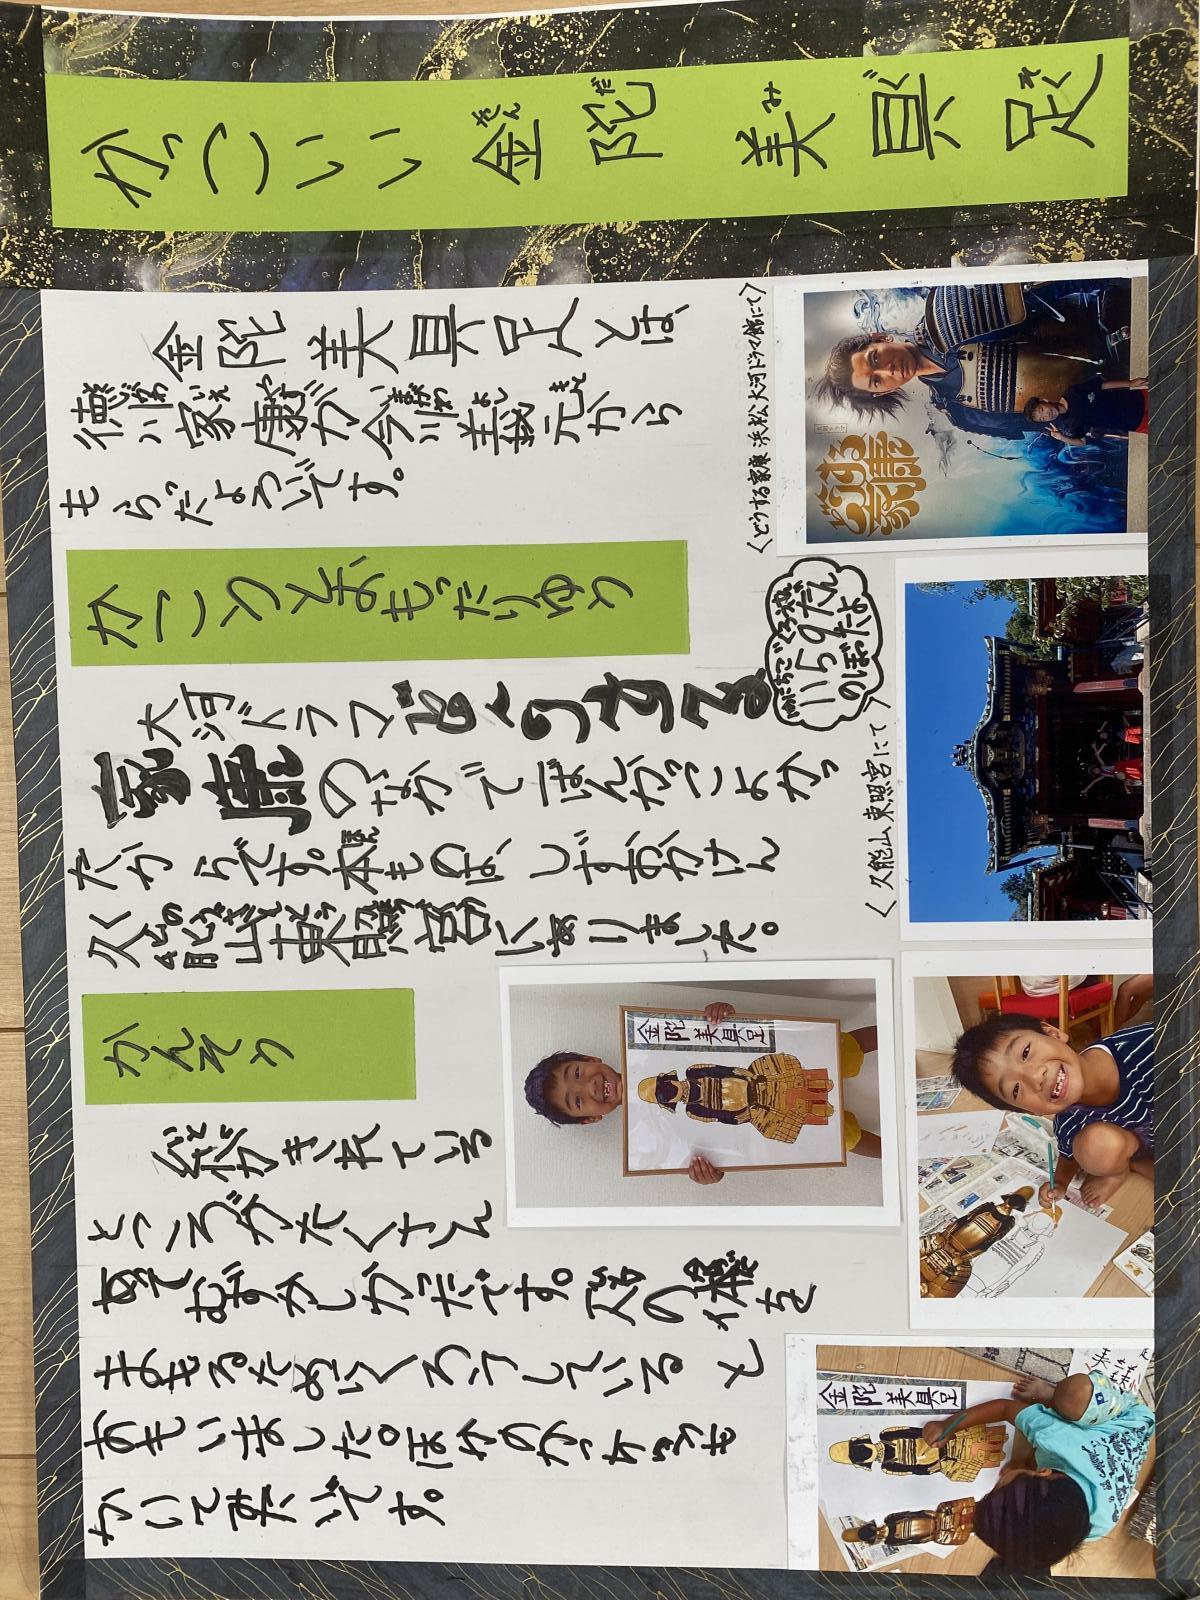 かっこいい金陀美具足
きん だ み ぐ そく
金陀美具足とは、
徳川家康が今川義元から
もらったよろいです。
かこうとおもったりゆう
大河ドラマどうする
家康のなかで一ばんかっこよかっ
たからです。本ものは、しずおかけん
久能山東照宮にありました。
かんそう
糸がきれている
ところがたくさん
あって
むずかしかったです。人の体を
まもるためにくろうしていると
おもいました。ほかのかっちゅうも
かいてみたいです。
〈どうする家康 浜松 大河ドラマ館にて〉
どうする家康
いちご
1159だん
のぼったよ
〈久能山東照宮にて〉
金陀美具足
金陀美具足